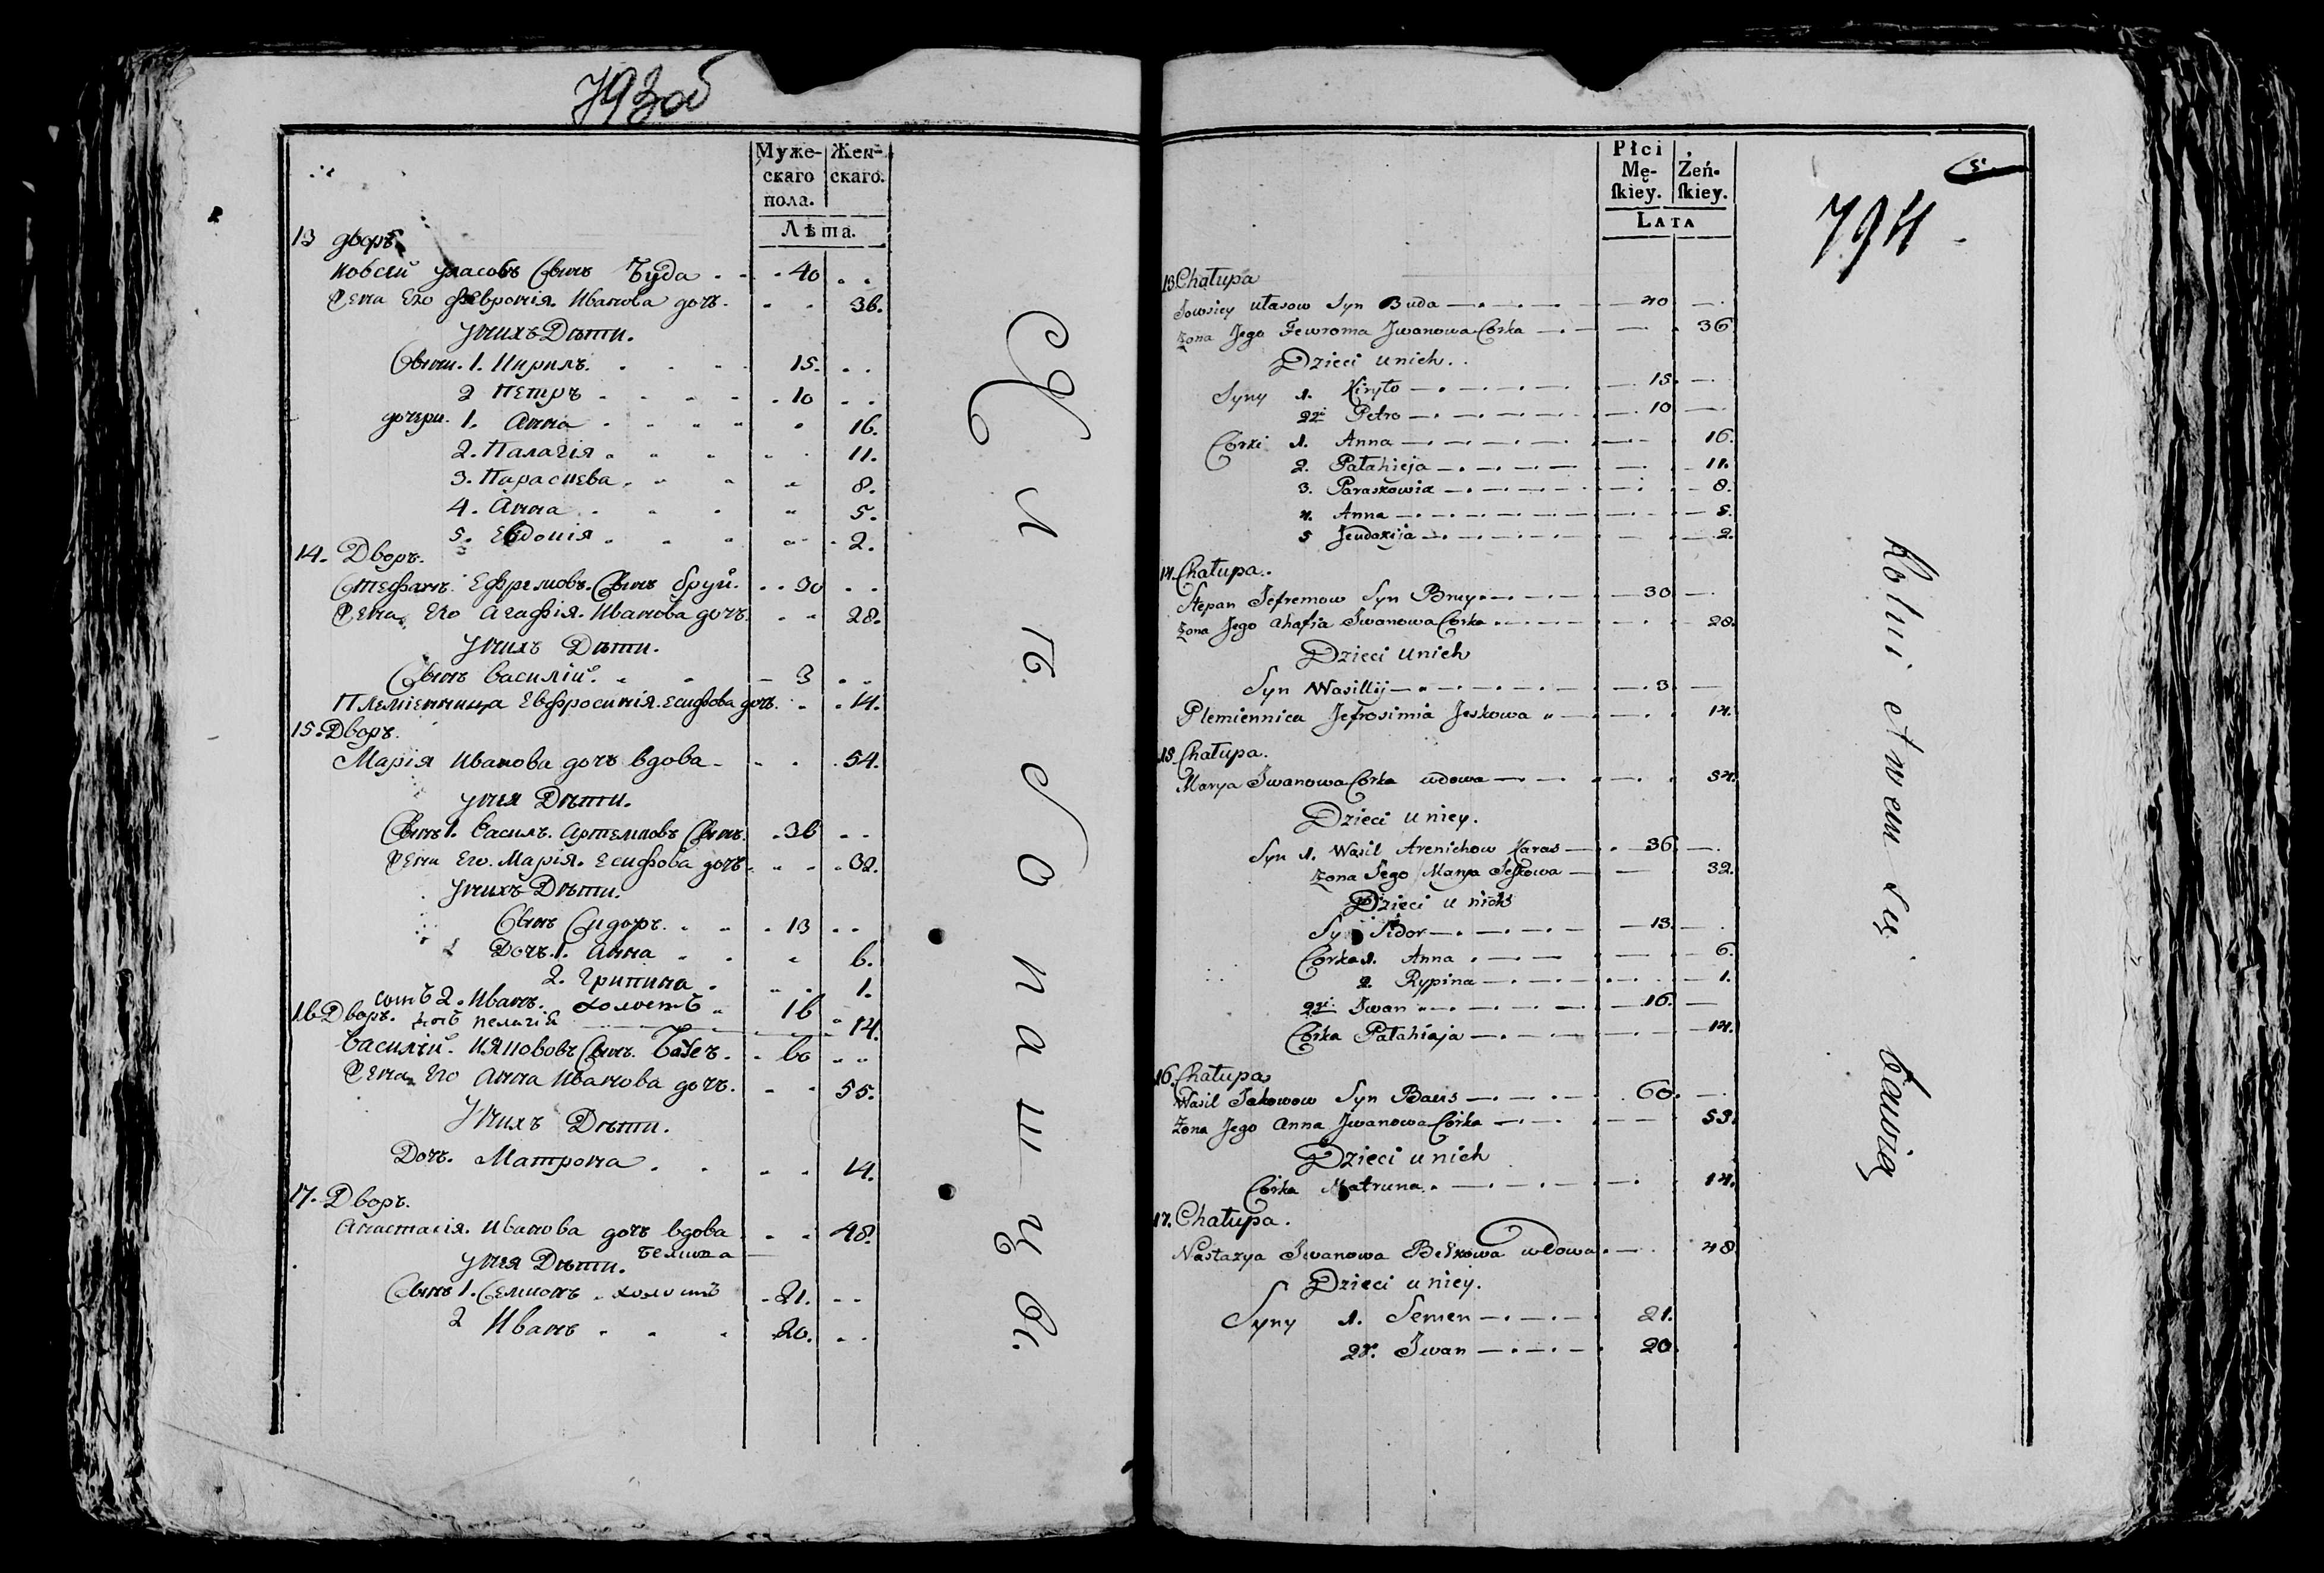 793об
Муже-
скаго
пола.
Жен-
скаго.
Лѣта.
13 дворъ.
Ковсѣй Уласовъ Сынъ Буда 40
Жена Его Феврония Иванова дочь. 36.
У нихъ Дѣти.
Сыны. 1. Кирилъ. 15.
2 Петръ 10
дочери. 1. Анна 16.
2. Палагія 11.
3. Параскева 8.
4. Анна 5.
5. Евдокія 2.
14. Дворъ.
Стефанъ Ефремовъ Сынъ Бруй. 30
Жена Его Агафія Иванова дочь 28.
У нихъ Дѣти.
Сынъ Василій. 3
Племіенница Евфросинія Есифова дочь. 14.
15. Дворъ.
Марія Иванова дочь вдова 54.
У нея Дѣти.
Сынъ 1. Василъ Артемповъ Сынъ. 36
Жена Его Марія Есифова дочь 32.
У нихъ Дѣти.
Сынъ Сидоръ. 13
Дочь. 1. Анна 6.
2. Грипина 1.
сынъ 2. Иванъ. холостъ 16
дочь пелагія 14.
16 Дворъ.
Василій Сынъ 60
Жена Его Анна Иванова дочь. 55.
У нихъ Дѣти.
Дочь. Матрона 14.
17. Дворъ.
Анастасія Иванова дочь вдова 48.
У нея Дѣти.
Сынъ 1. Семионъ холостъ 21.
2 Иванъ 20.
Хлѣбопашцы.
Płci
Mę-
ſkiey.
Żeń-
ſkiey.
LATA
5.
794
13. Chałupa
Jowsiey Ułasow Syn Buda 40
Żona Jego Fewronia Jwanowa Corka 36
Dzieci u nich.
Syny 1. Kiryło 15.
2gi Petro 10
Corki 1. Anna 16.
2. Pałahieja 11.
3. Paraskowia 8.
4. Anna 5.
5 Jeudokija 2.
14. Chałupa.
Stepan Jefremow Syn Bruy 30
Żona Jego Ahafia Jwanowa Corka 28.
Dzieci u nich
Syn Wasilij 3.
Plemiennica Jefrosimia Jeskowa 14.
15. Chałupa.
Marya Jwanowa Corka wdowa 54.
Dzieci u niey.
Syn 1. Wasil Karas 36.
Żona Jego Marya Jeskowa 32.
Dzieci u nich
Syn Sidor 13.
Corka 1. Anna 6.
2. Rypina 1.
2gi Jwan 16.
Corka Pałahieja 14.
16. Chałupa
Wasil Jakowow Syn Baus 60.
Żona Jego Anna Jwanowa Corka 53.
Dzieci u nich
Corka Matruna 14.
17. Chałupa.
Nastazya Jwanowa wdowa 48
Dzieci u niey.
Syny 1. Semen 21.
2gi. Jwan 20
Rolnictwem się bawią